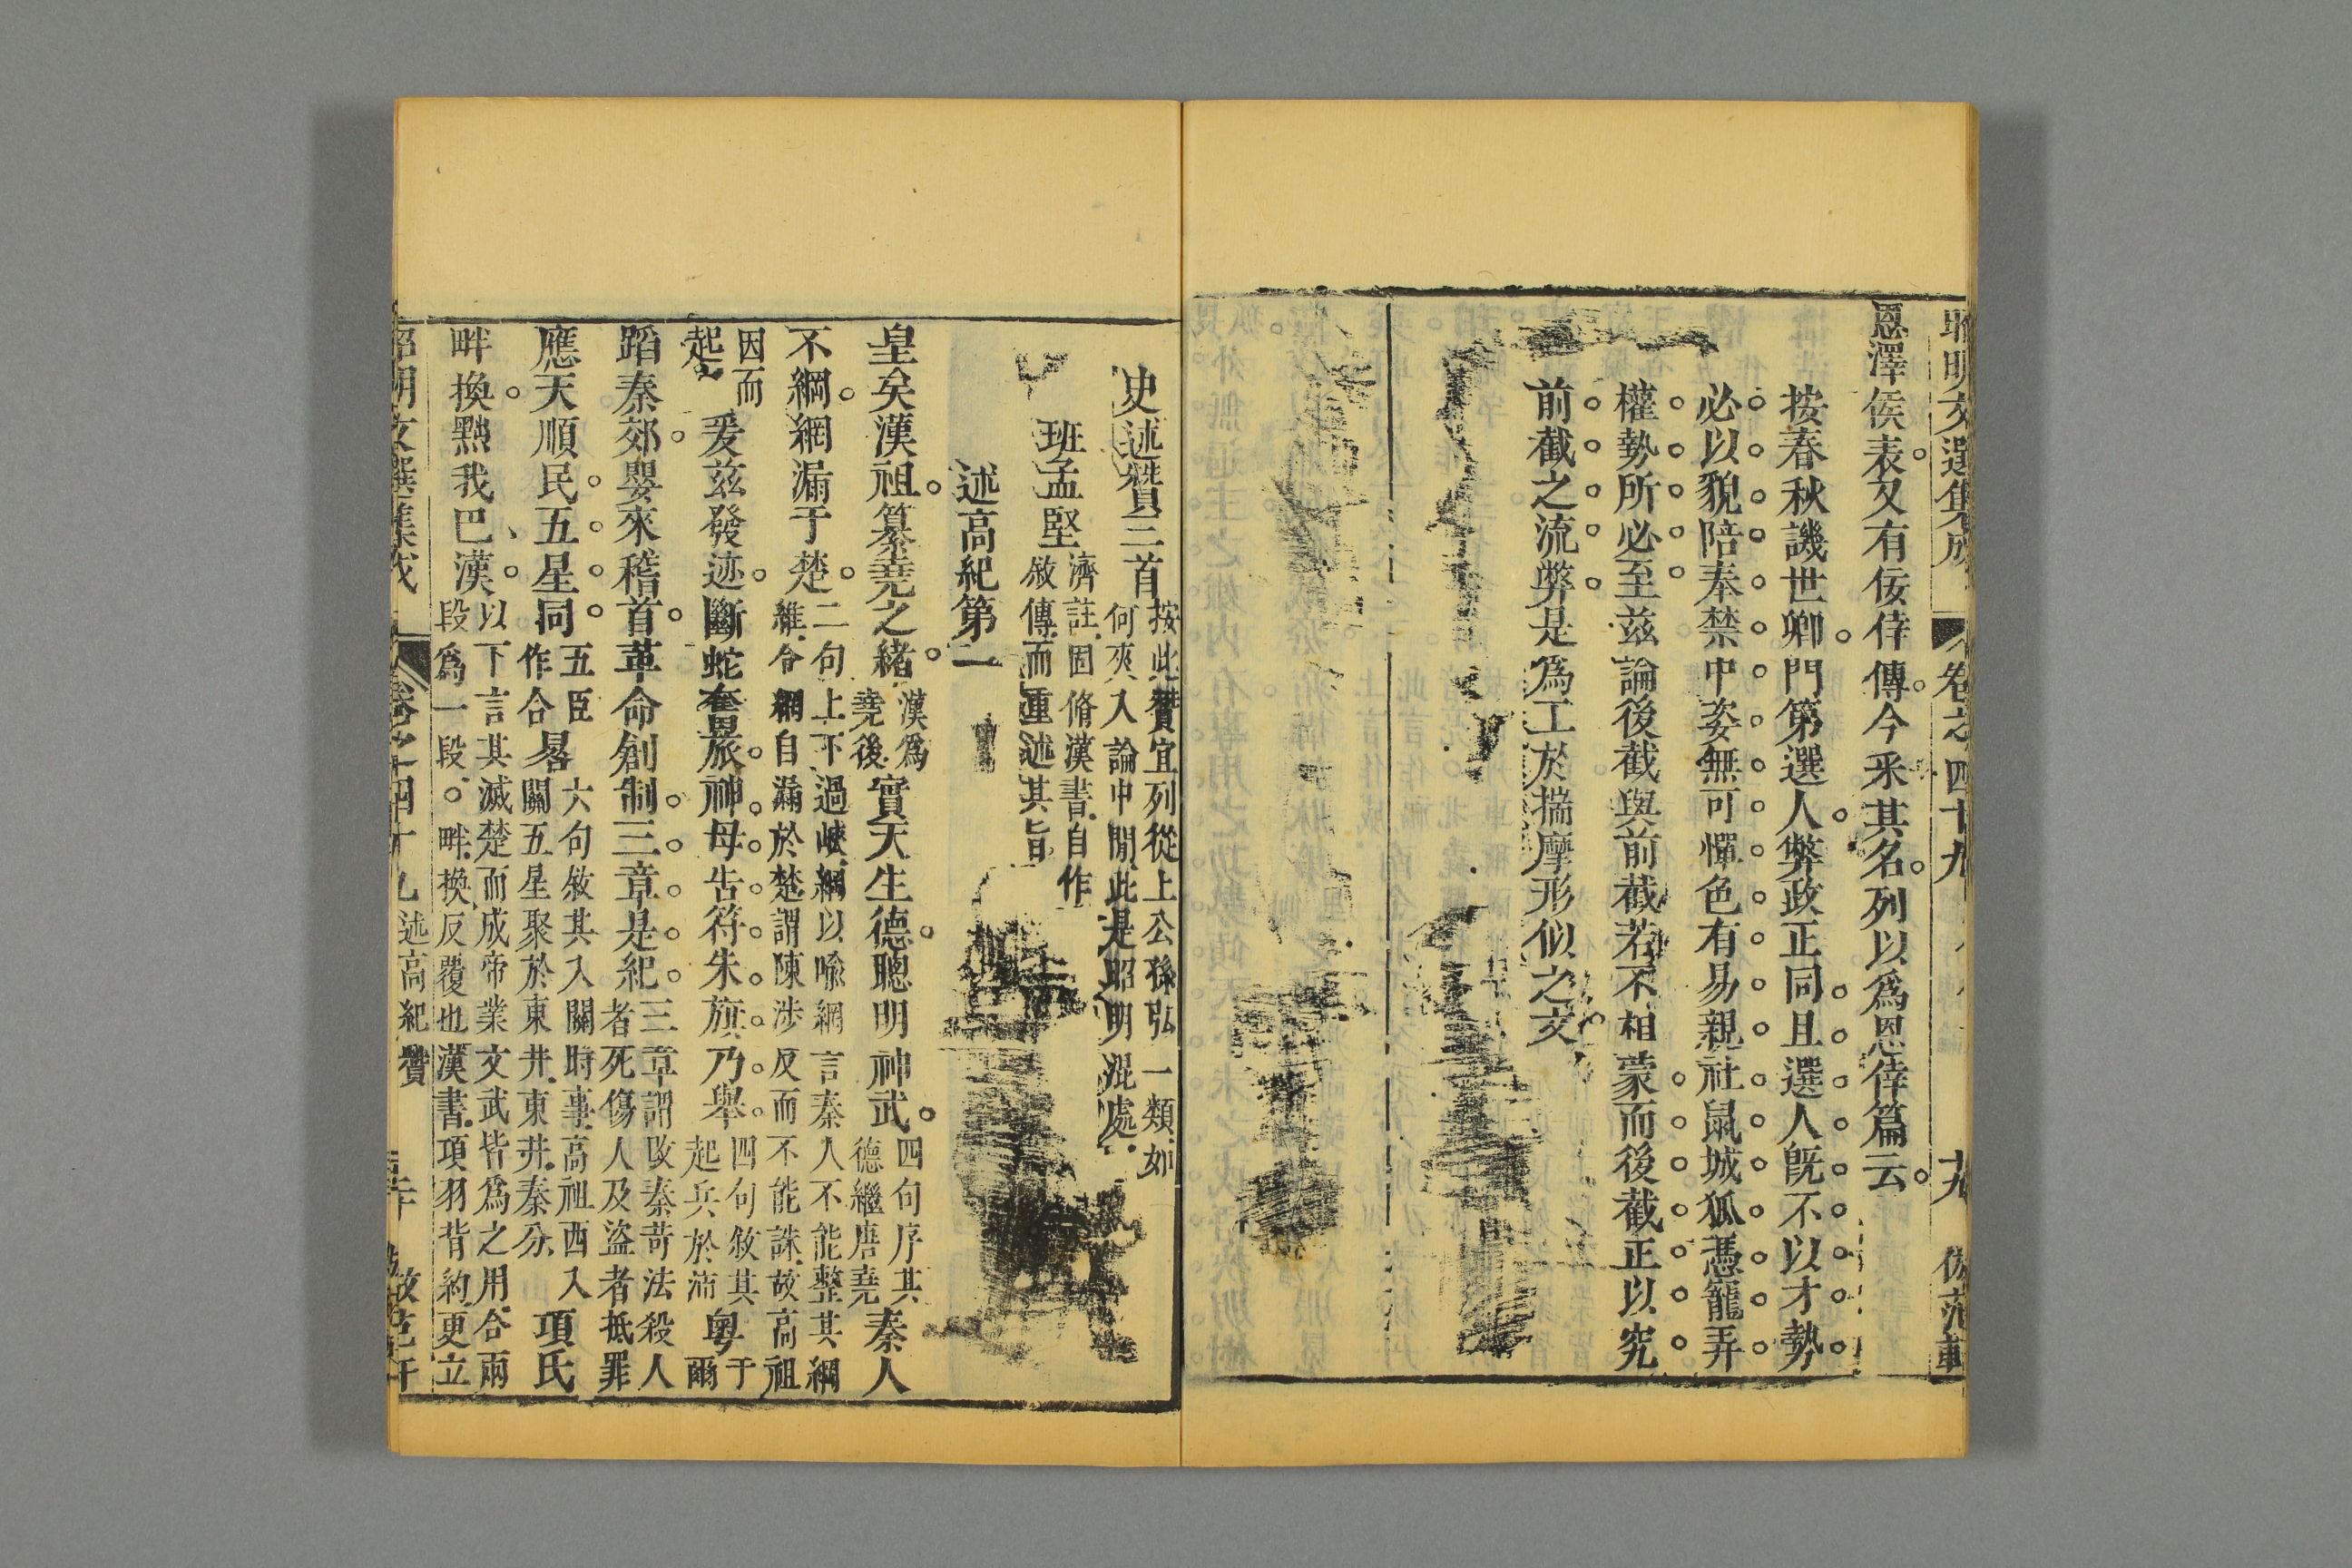 昭明文選集成 卷之四十九 十九
恩澤侯表又有佞倖傳今釆其名列以爲恩倖篇云
按春秋譏世卿門第選人弊政正同且選人旣不以才勢
必以貌陪奉禁中姿無可憚色有易親社鼠城狐憑寵弄
權勢所必至玆論後截與前截若不相蒙而後截正以究
前截之流弊是爲工於揣摩形似之文
史述贊三首 按此贊宜列從上公孫弘一類如
何夾入論中間此是昭明混處
班孟堅 濟註固脩漢書自作
敘傳而重述其旨
述高紀第一
皇矣漢祖纂堯之緒 漢爲
堯後 實天生德聰明神武 四句序其
德繼唐堯 秦人
不綱網漏于楚 二句上下過峽綱以喻網言秦人不能整其綱
維合網自漏於楚謂陳涉反而不能誅故高祖
因而
起 爰茲發迹斷蛇奮旅神母告符朱旗乃舉 四句敘其
起兵於沛 粵 于
爾
蹈秦郊嬰來稽首革命創制三章是紀 三章謂改秦苛法殺人
者死傷人及盜者抵罪
應天順民五星同 五臣
作合 晷 六句敘其入關時事高祖西入
關五星聚於東井東井秦分 項氏
畔換黜我巴漢 以下言其滅楚而成帝業文武皆爲之用合兩
段爲一段。畔換反覆也漢書項羽背約更立
昭明文選集成 卷之四十九 述高紀贊 二十